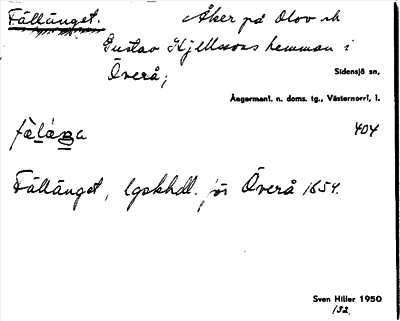 Fällänget. Åker på Olov och
Gustav Kjellssons hemman i
Överå;
Sidensjö sn,
Ångermanl. n. doms. tg., Västernorrl, l.
404
Fällänget, lgskhdl. för Överå 1654.
Sven Hiller 1950
132.